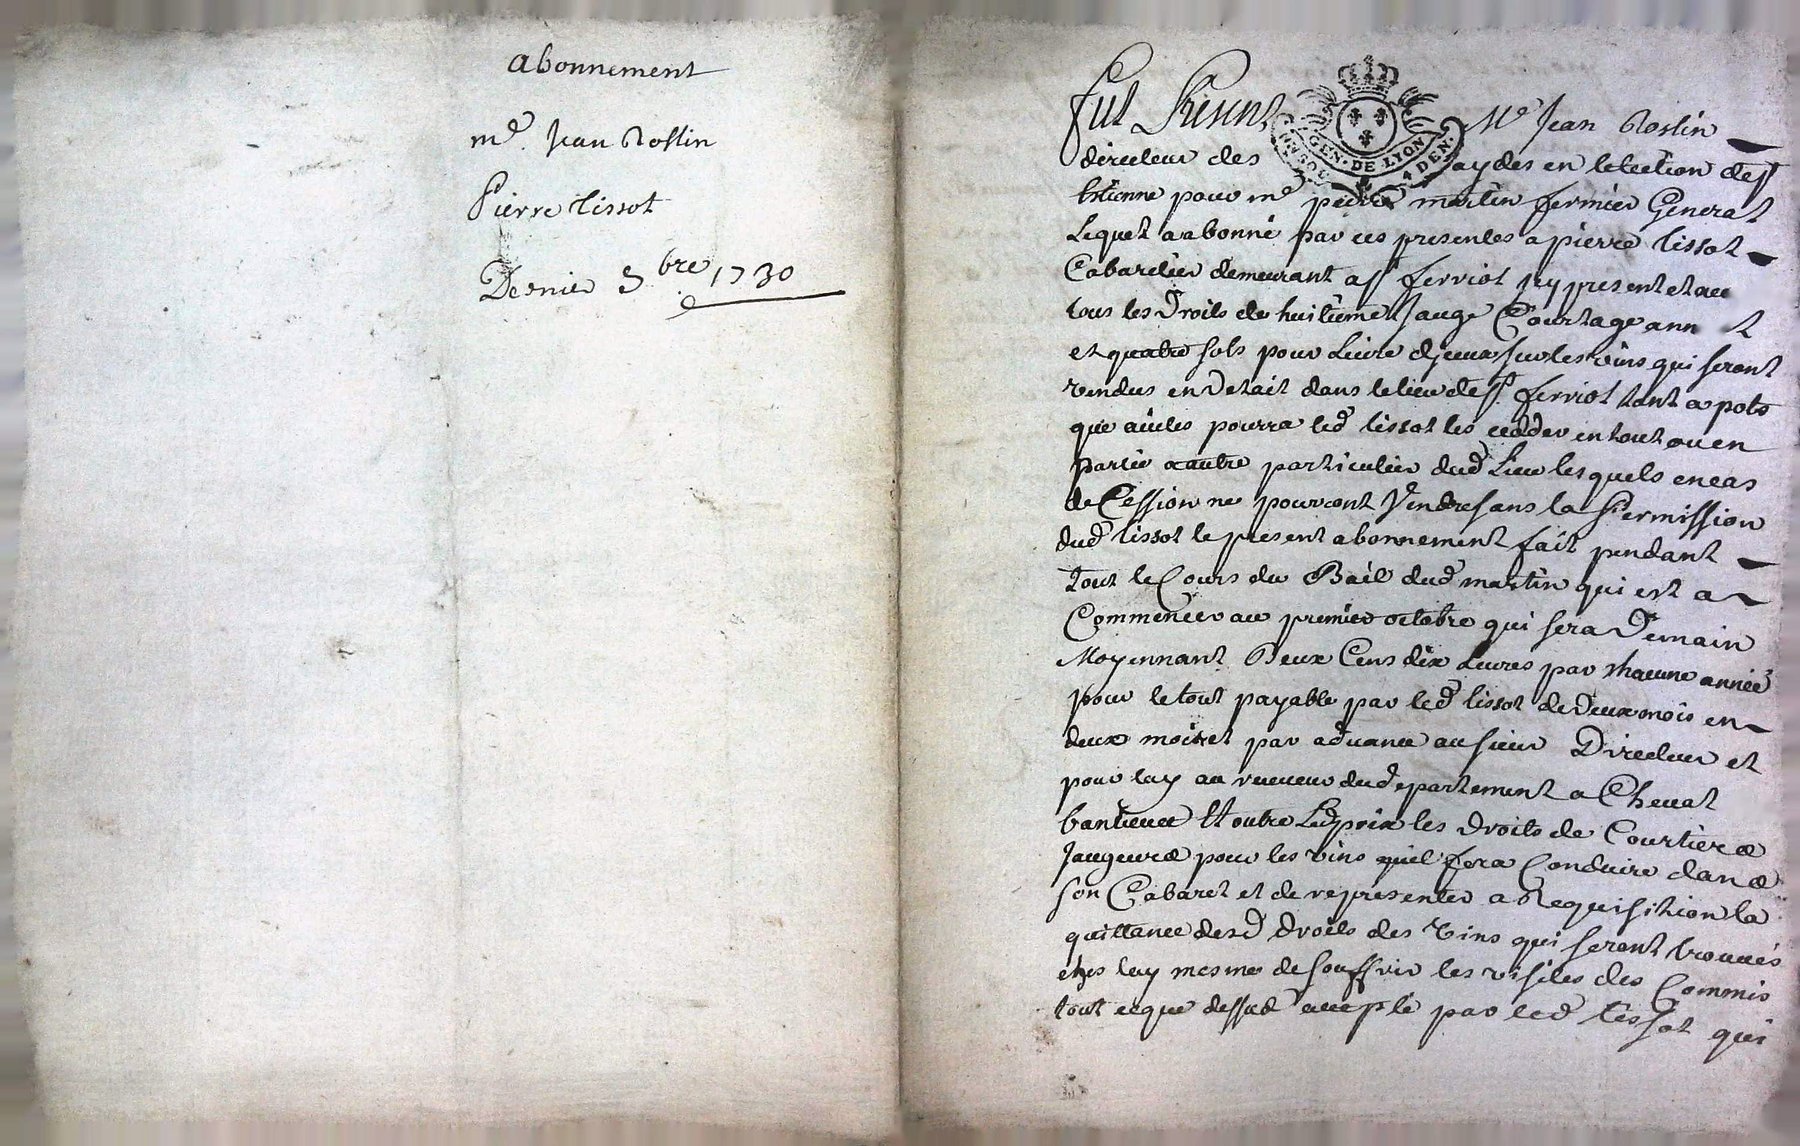 abonnement
me. Jean Rostin
Pierre tissot
Dernier 7bre 1730
GEN. DE LYON
4 DEN.
fut Present Me Jean Rostin
directeur des aydes en letection de st
Estienne pour me pierre martin fermier General
Lequel a abonné par ces presentes a pierre tissot
Cabaretier demeurant a st ferriol icy present et
tous les Droits de huitieme Jauge Courtage
et quatre sols pour Livre diceux sur les vins qui seront
vendus en Detail dans le lieu de st. ferriol tant a pots
que pourra led tissot les cedder en tout ou en
partie a autre particulier dud Lieu lesquels en cas
de Cession ne pourront Vendre sans la Permission
dud tissot le present abonnement fait pendant
tout le Cours du Bail dud martin qui est a
Commencer au premier octobre qui sera Demain
Moyennant Deux Cens dix Livres par chacune année
pour le tout payable par led tissot de Deux mois en
deux mois et par advance au sieur Directeur et
pour luy au receveur dud epartement a Cheval
Et outre Led prix les droits de Courtiers
Jaugeurs pour les vins quil fera Conduire dans
son Cabaret et de representer a Requisition la
quittance desd droits des Vins qui seront trouvés
chés luy mesme de souffrir les visites des Commis
tout ce que dessus accepté par led tissot qui